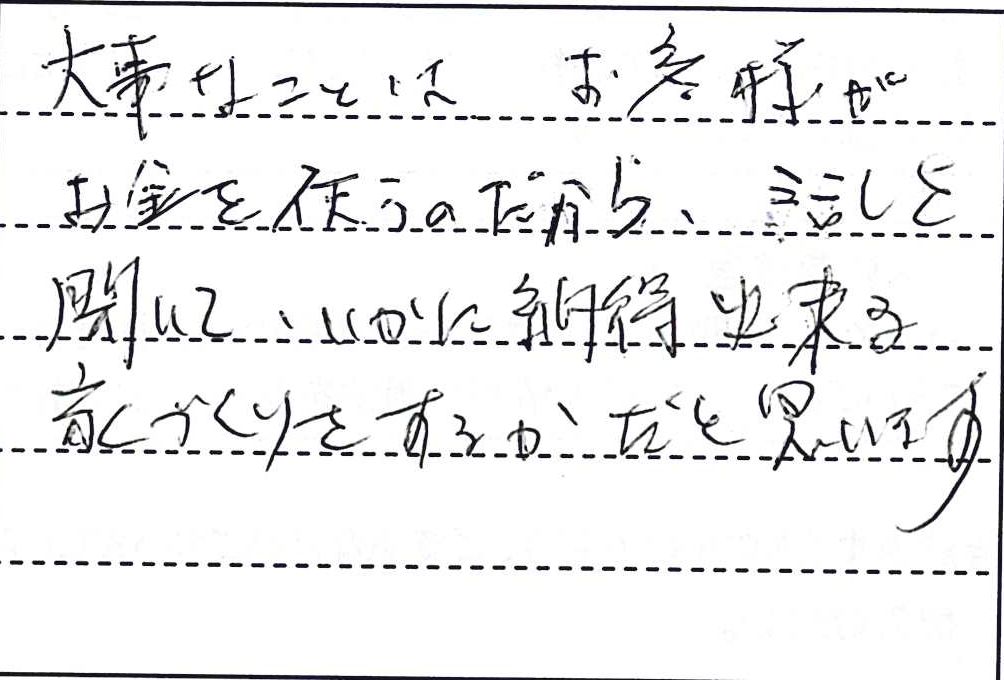 大事なことは お客様が
お金を使うのだから、話しを
聞いて、いかに納得出来る
家づくりをするかだと思います